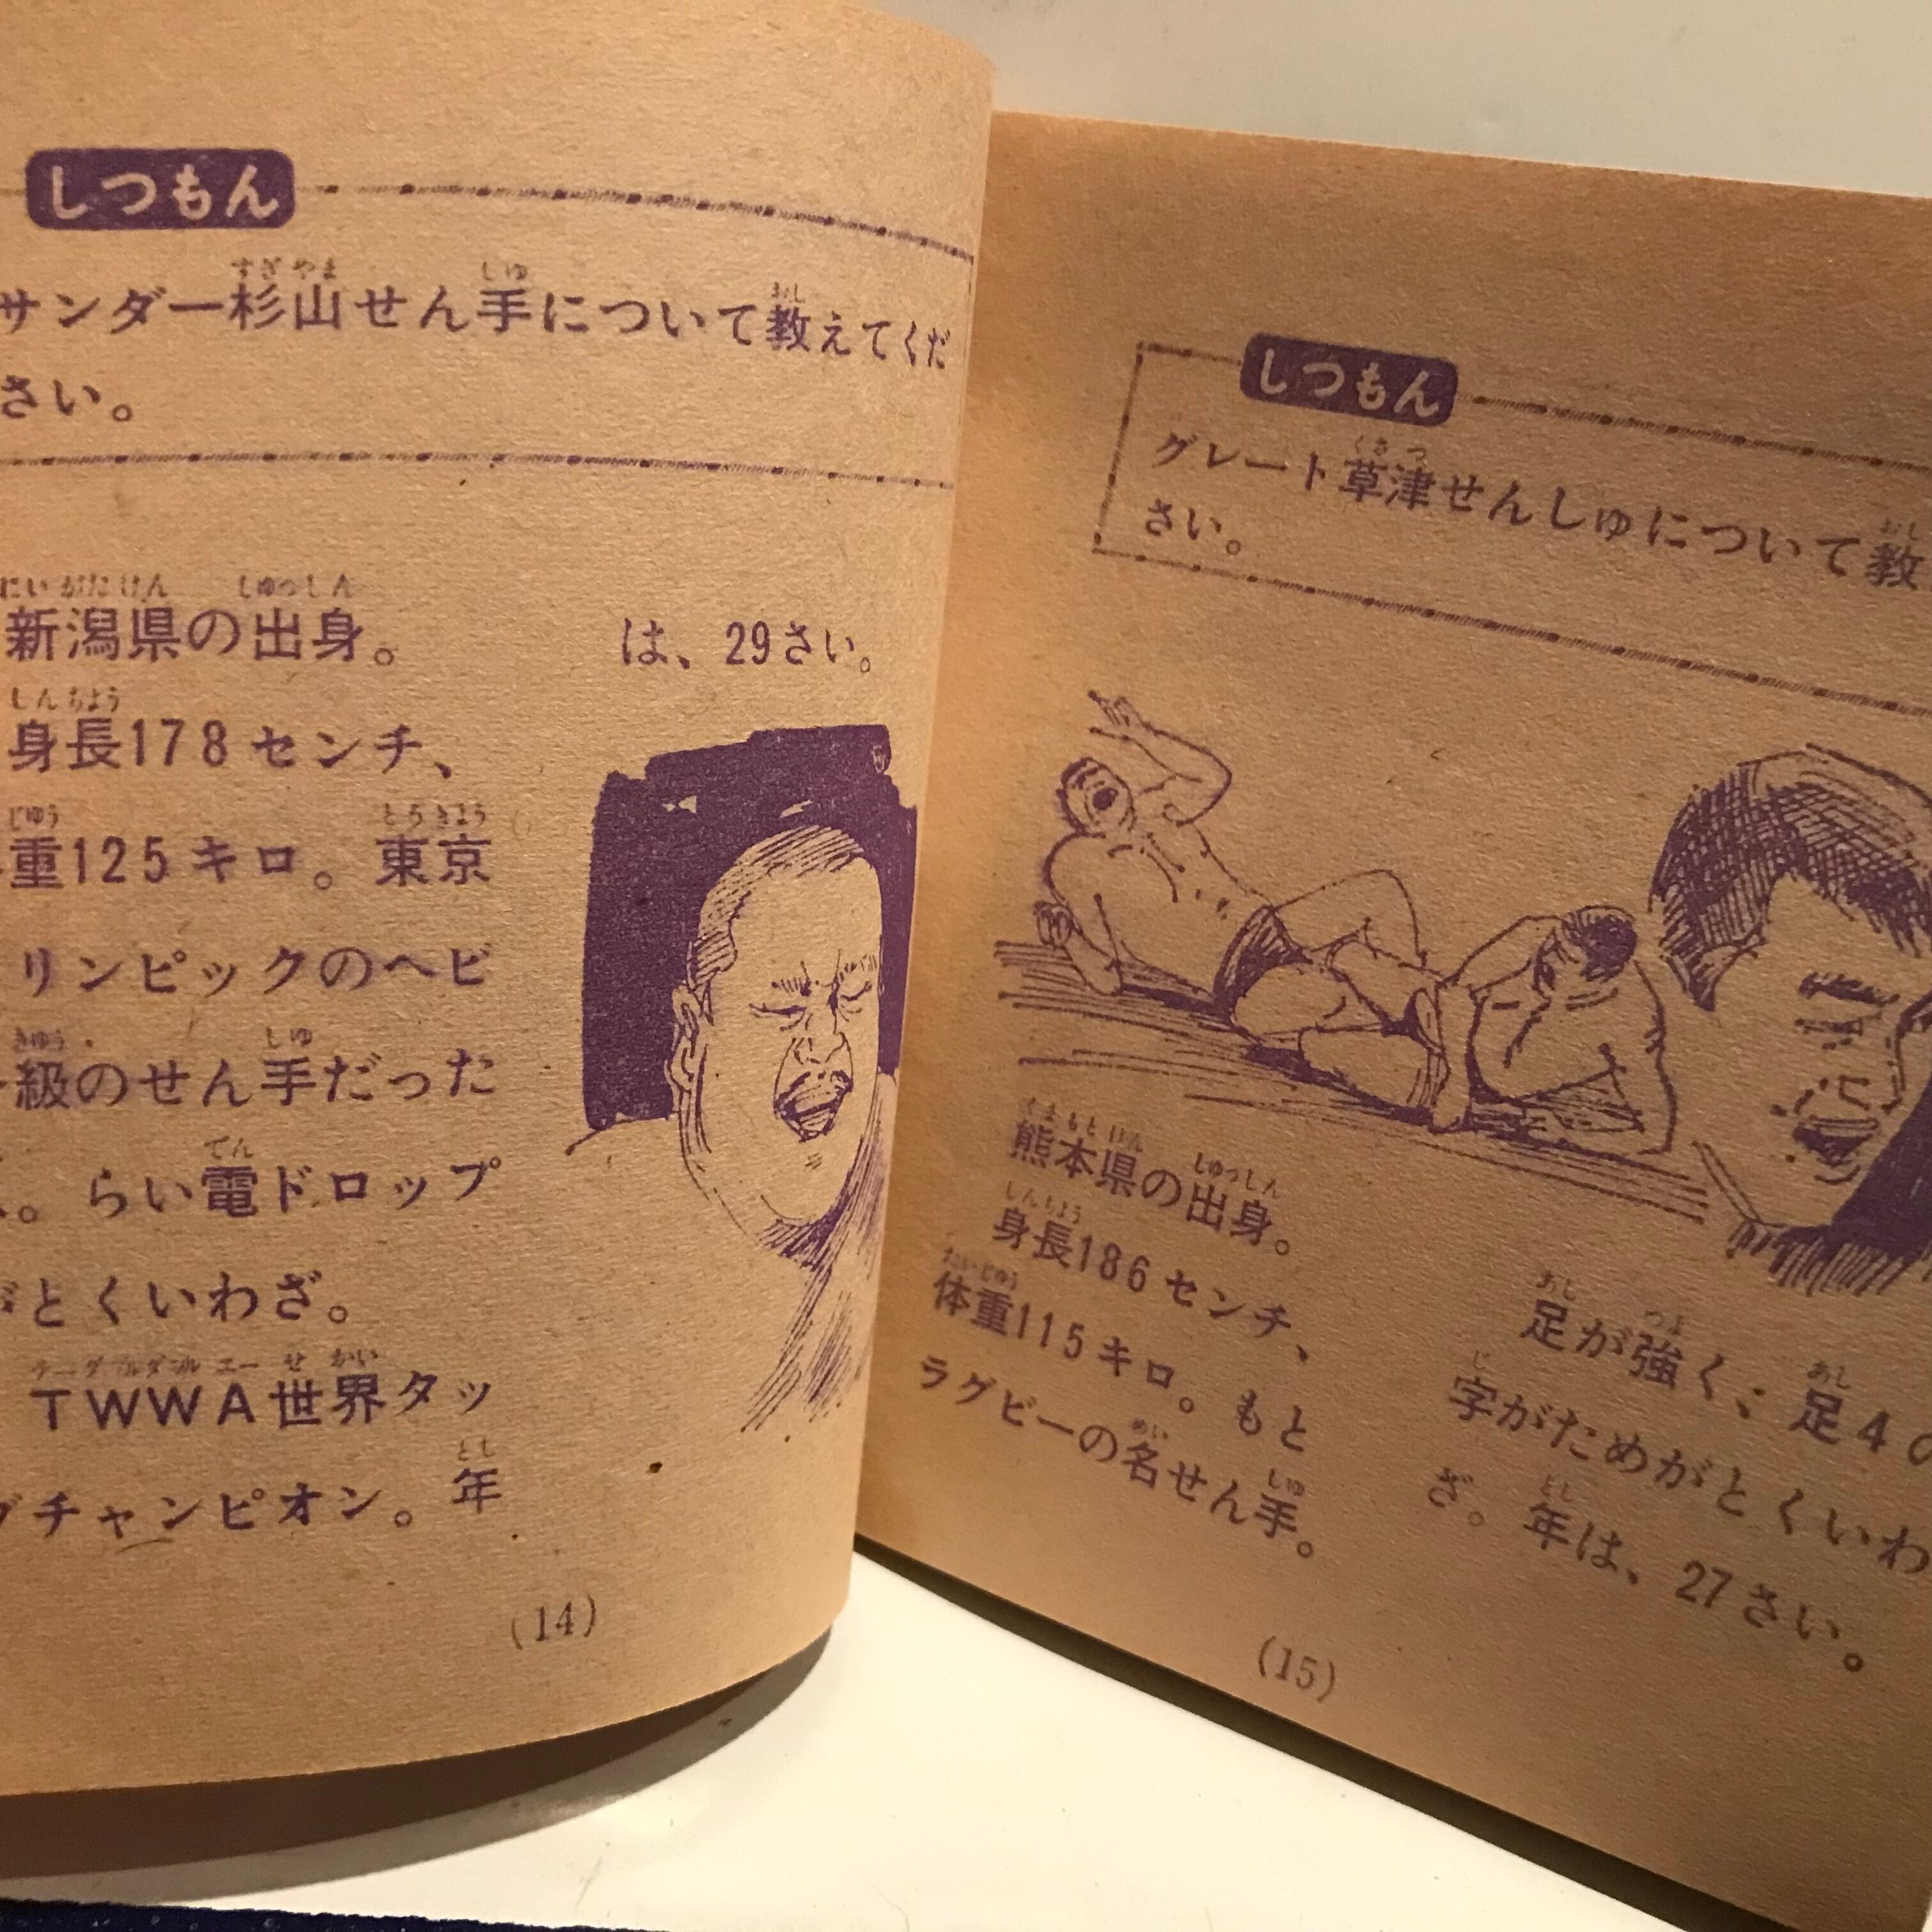 しつもん
サンダー杉山せん手について教えてくだ
さい。
新潟県の出身。
身長178センチ、
重125キロ。東京
リンピックのヘビ
級のせん手だった
。らい電ドロップ
がとくいわざ。
TWWA世界タッ
グチャンピオン。年
は、29さい。
(14)
しつもん
グレート草津せんしゅについて教
さい。
熊本県の出身。
身長186センチ、
体重115キロ。もと
ラグビーの名せん手。
足が強く、足4の
字がためがとくいわ
ざ。年は、27さい。
(15)